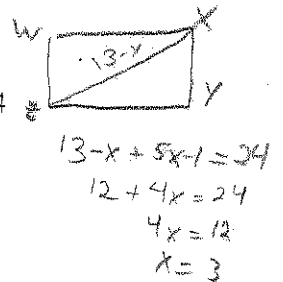 W X
13-x
Y
13-x + 5x-1 = 24
12 + 4x = 24
4x = 12
x = 3